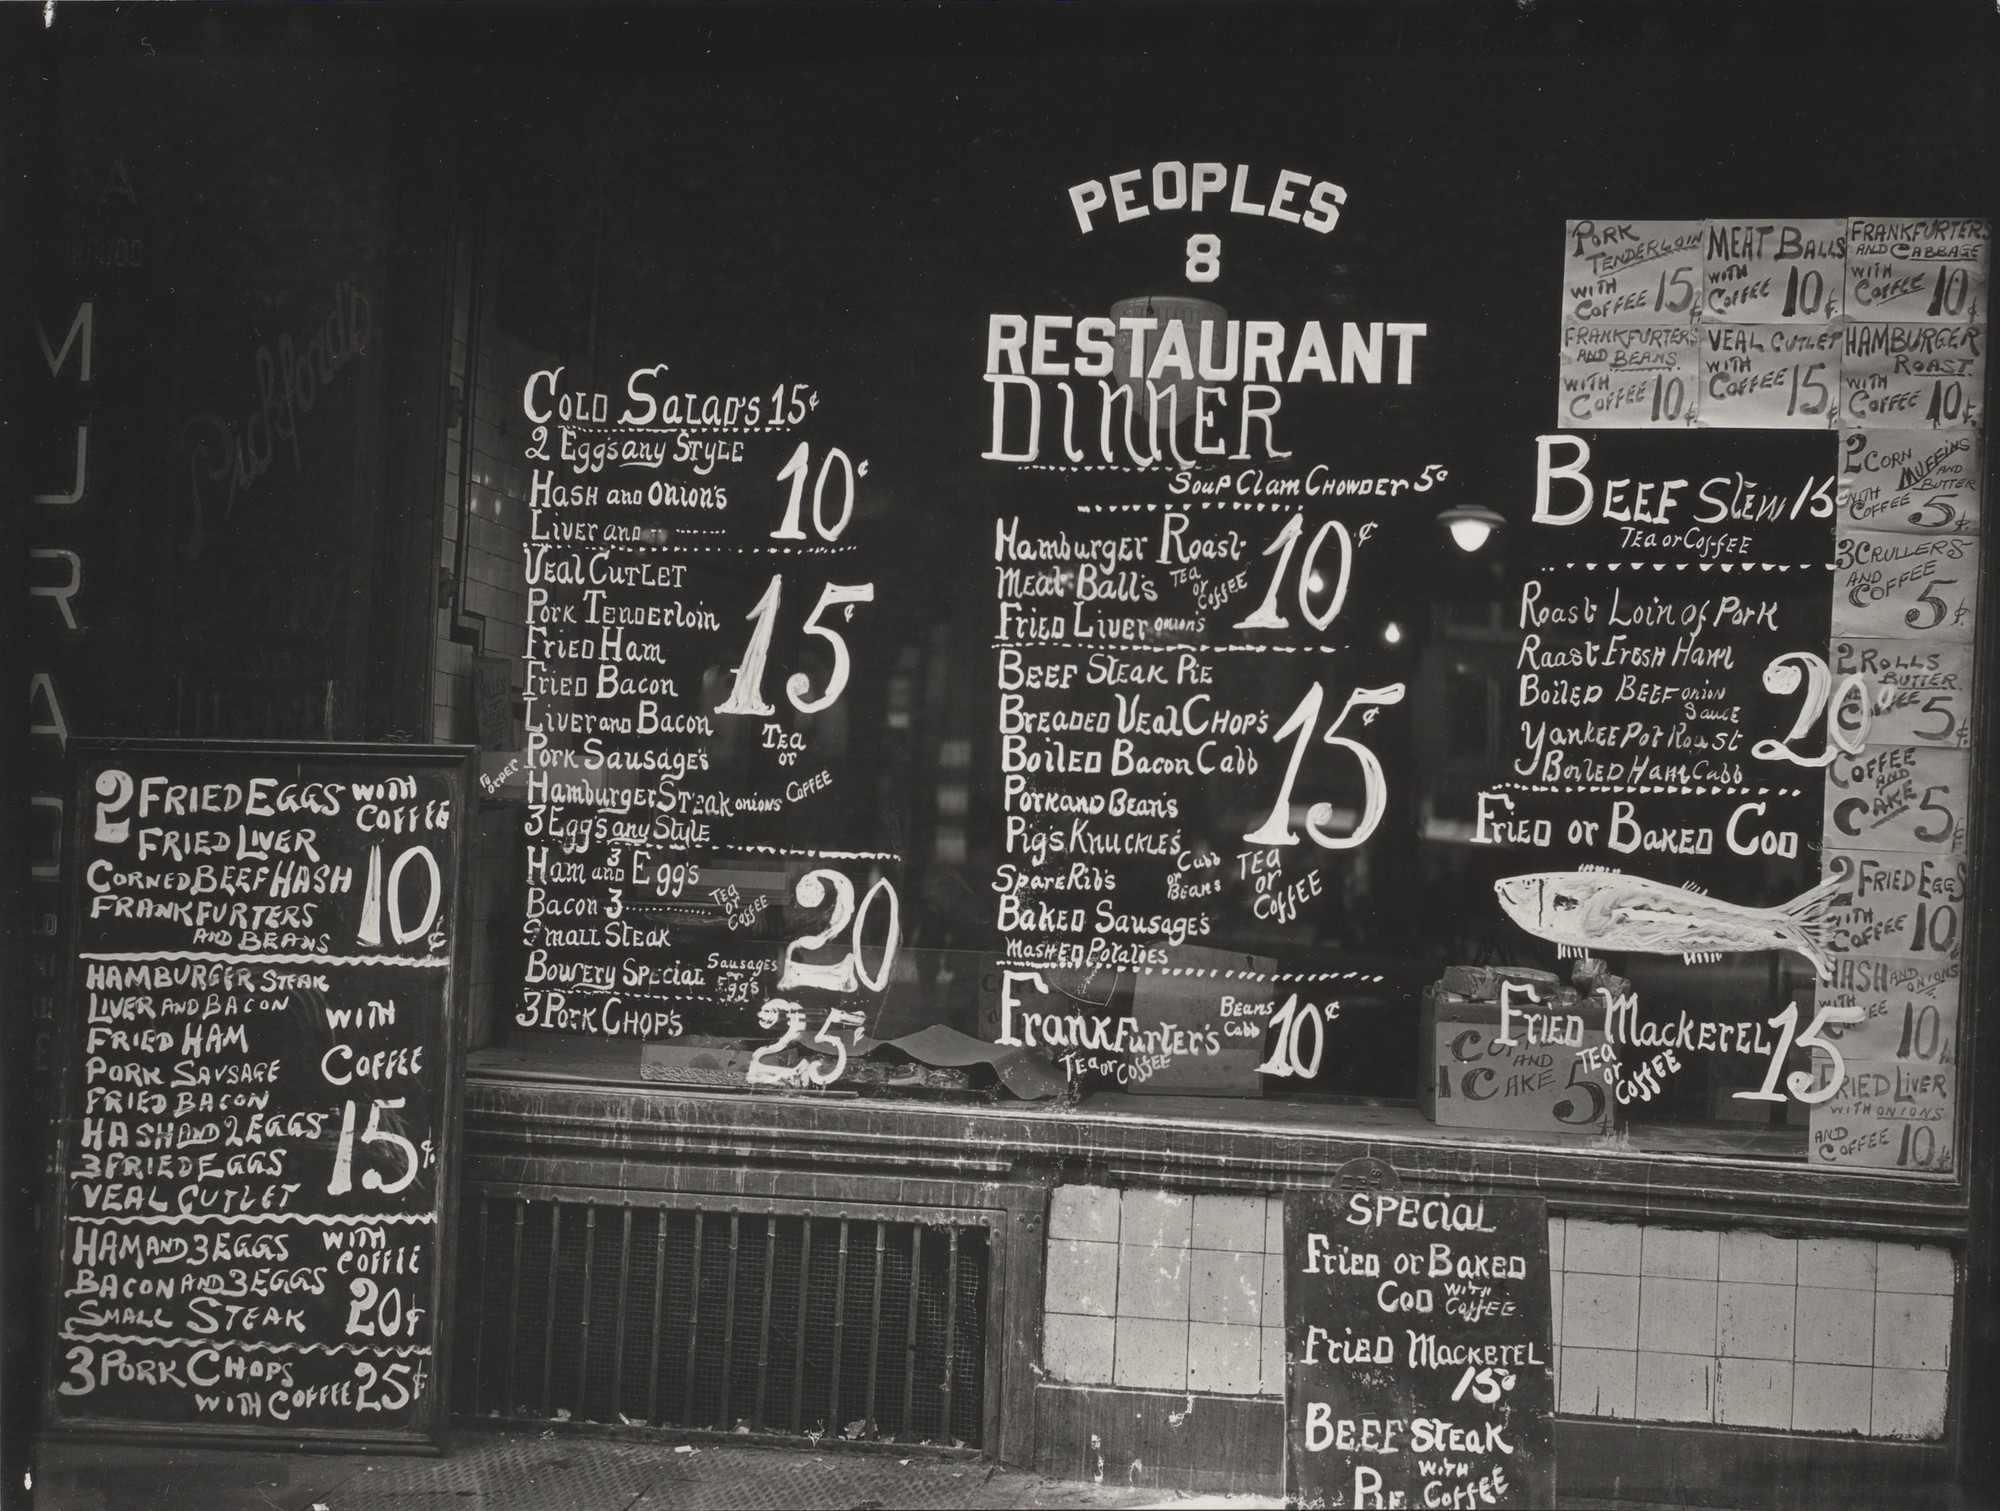 PEOPLES
8
RESTAURANT
DINNER
SOUP CLAM CHOWDER 5¢
HAMBURGER ROAST
MEAT BALL'S TEA or COFFEE
FRIED LIVER ONION'S
10¢
BEEF STEAK PIE
BREADED VEAL CHOP'S
BOILED BACON CABB
PORK AND BEAN'S
PIG'S KNUCKLES
SPARE RIB'S
Cabb or Beans
BAKED SAUSAGE'S
MASHED POTATOES
15¢
TEA or COFFEE
FRANKFURTER'S
BEANS CABB
10¢
TEA or COFFEE
COLD SALAD'S 15¢
2 Egg's any STYLE
HASH and ONION'S
LIVER and
10¢
VEAL CUTLET
PORK TENDERLOIN
FRIED HAM
FRIED BACON
LIVER AND BACON
PORK SAUSAGE'S
HAMBURGER STEAK ONIONS
3 Egg's any Style
15¢
TEA
or
COFFEE
To order
HAM and 3 Egg's
BACON 3
SMALL STEAK
BOWERY SPECIAL Sausages Egg's
TEA or COFFEE
20
3 PORK CHOP'S
25¢
BEEF STEW 15
TEA or COFFEE
ROAST LOIN of PORK
RAAST FRESH HAM
BOILED BEEF ONION Sauce
YANKEE POT ROAST
BOILED HAM CABB
20¢
FRIED OR BAKED COD
FRIED MACKEREL 15
TEA or COFFEE
PORK
TENDERLOIN
WITH
COFFEE 15¢
MEAT BALLS
WITH
COFFEE 10¢
FRANKFURTERS
AND CABBAGE
WITH
COFFEE 10¢
FRANKFURTERS
AND BEANS
WITH
COFFEE 10¢
VEAL CUTLET
WITH
COFFEE 15¢
HAMBURGER
ROAST
WITH
COFFEE 10¢
2 CORN MUFFINS
AND BUTTER
WITH
COFFEE 5¢
3 CRULLERS
AND
COFFEE
5¢
2 ROLLS
BUTTER
COFFEE 5¢
COFFEE
AND
CAKE 5¢
2 FRIED EGGS
WITH
COFFEE 10
HASH AND ONIONS
WITH
10¢
FRIED LIVER
WITH ONIONS
AND
COFFEE 10¢
AND
1 CAKE 5
2 FRIED EGGS WITH COFFEE
FRIED LIVER
CORNED BEEF HASH
FRANKFURTERS
AND BEANS
10¢
HAMBURGER STEAK
LIVER AND BACON
FRIED HAM
PORK SAVSAGE
FRIED BACON
HASH AND 2 EGGS
3 FRIED EGGS
VEAL CUTLET
WITH
COFFEE
15¢
HAM AND 3 EGGS
BACON AND 3 EGGS
SMALL STEAK
WITH
COFFEE
20¢
3 PORK CHOPS
WITH COFFEE 25¢
SPECIAL
FRIED or BAKED
COD WITH Coffee
FRIED MACKEREL
15¢
BEEF STEAK
WITH
COFFEE
M
J
R
A